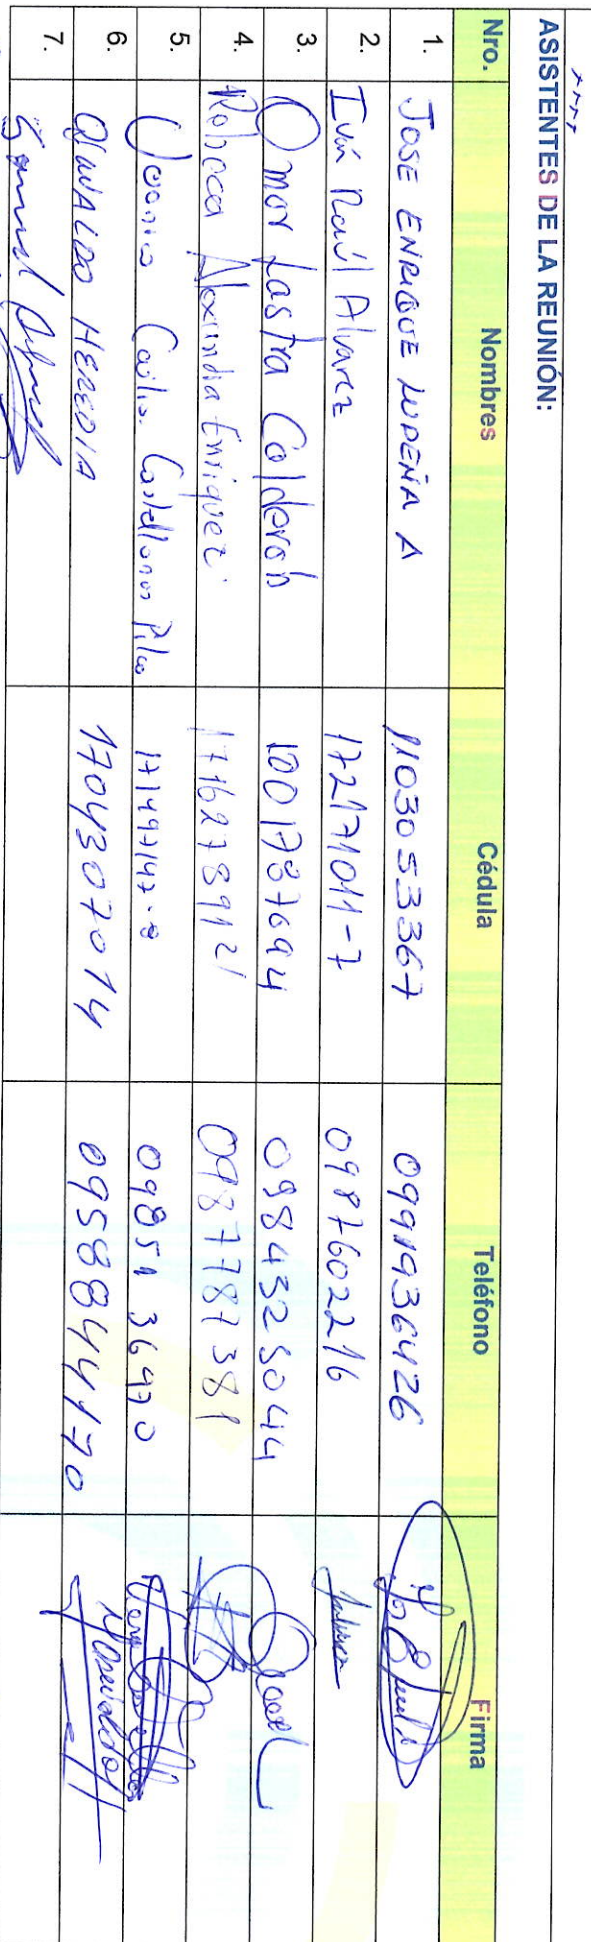 ASISTENTES DE LA REUNIÓN:
Nro. Nombres Cédula Teléfono Firma
1. JOSE ENRIQUE LUDEÑA A 1103053367 0991936426
2. Iván Raúl Alvarez 172171011-7 0987602216
3. Omar Lastra Calderon 1001787694 0984325044
4. Enriquez 0987787381
5. Castellanos 171497147-8 0985136470
6. OSWALDO HEREDIA 1704307014 0958844170
7.